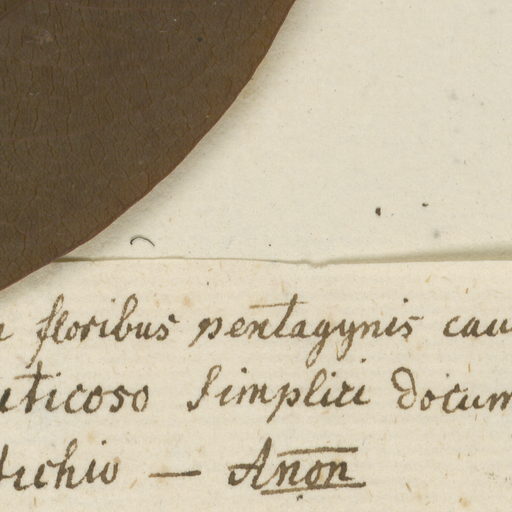 floribus pentagynis cau
uticoso Simplici docum
tichio — Anon